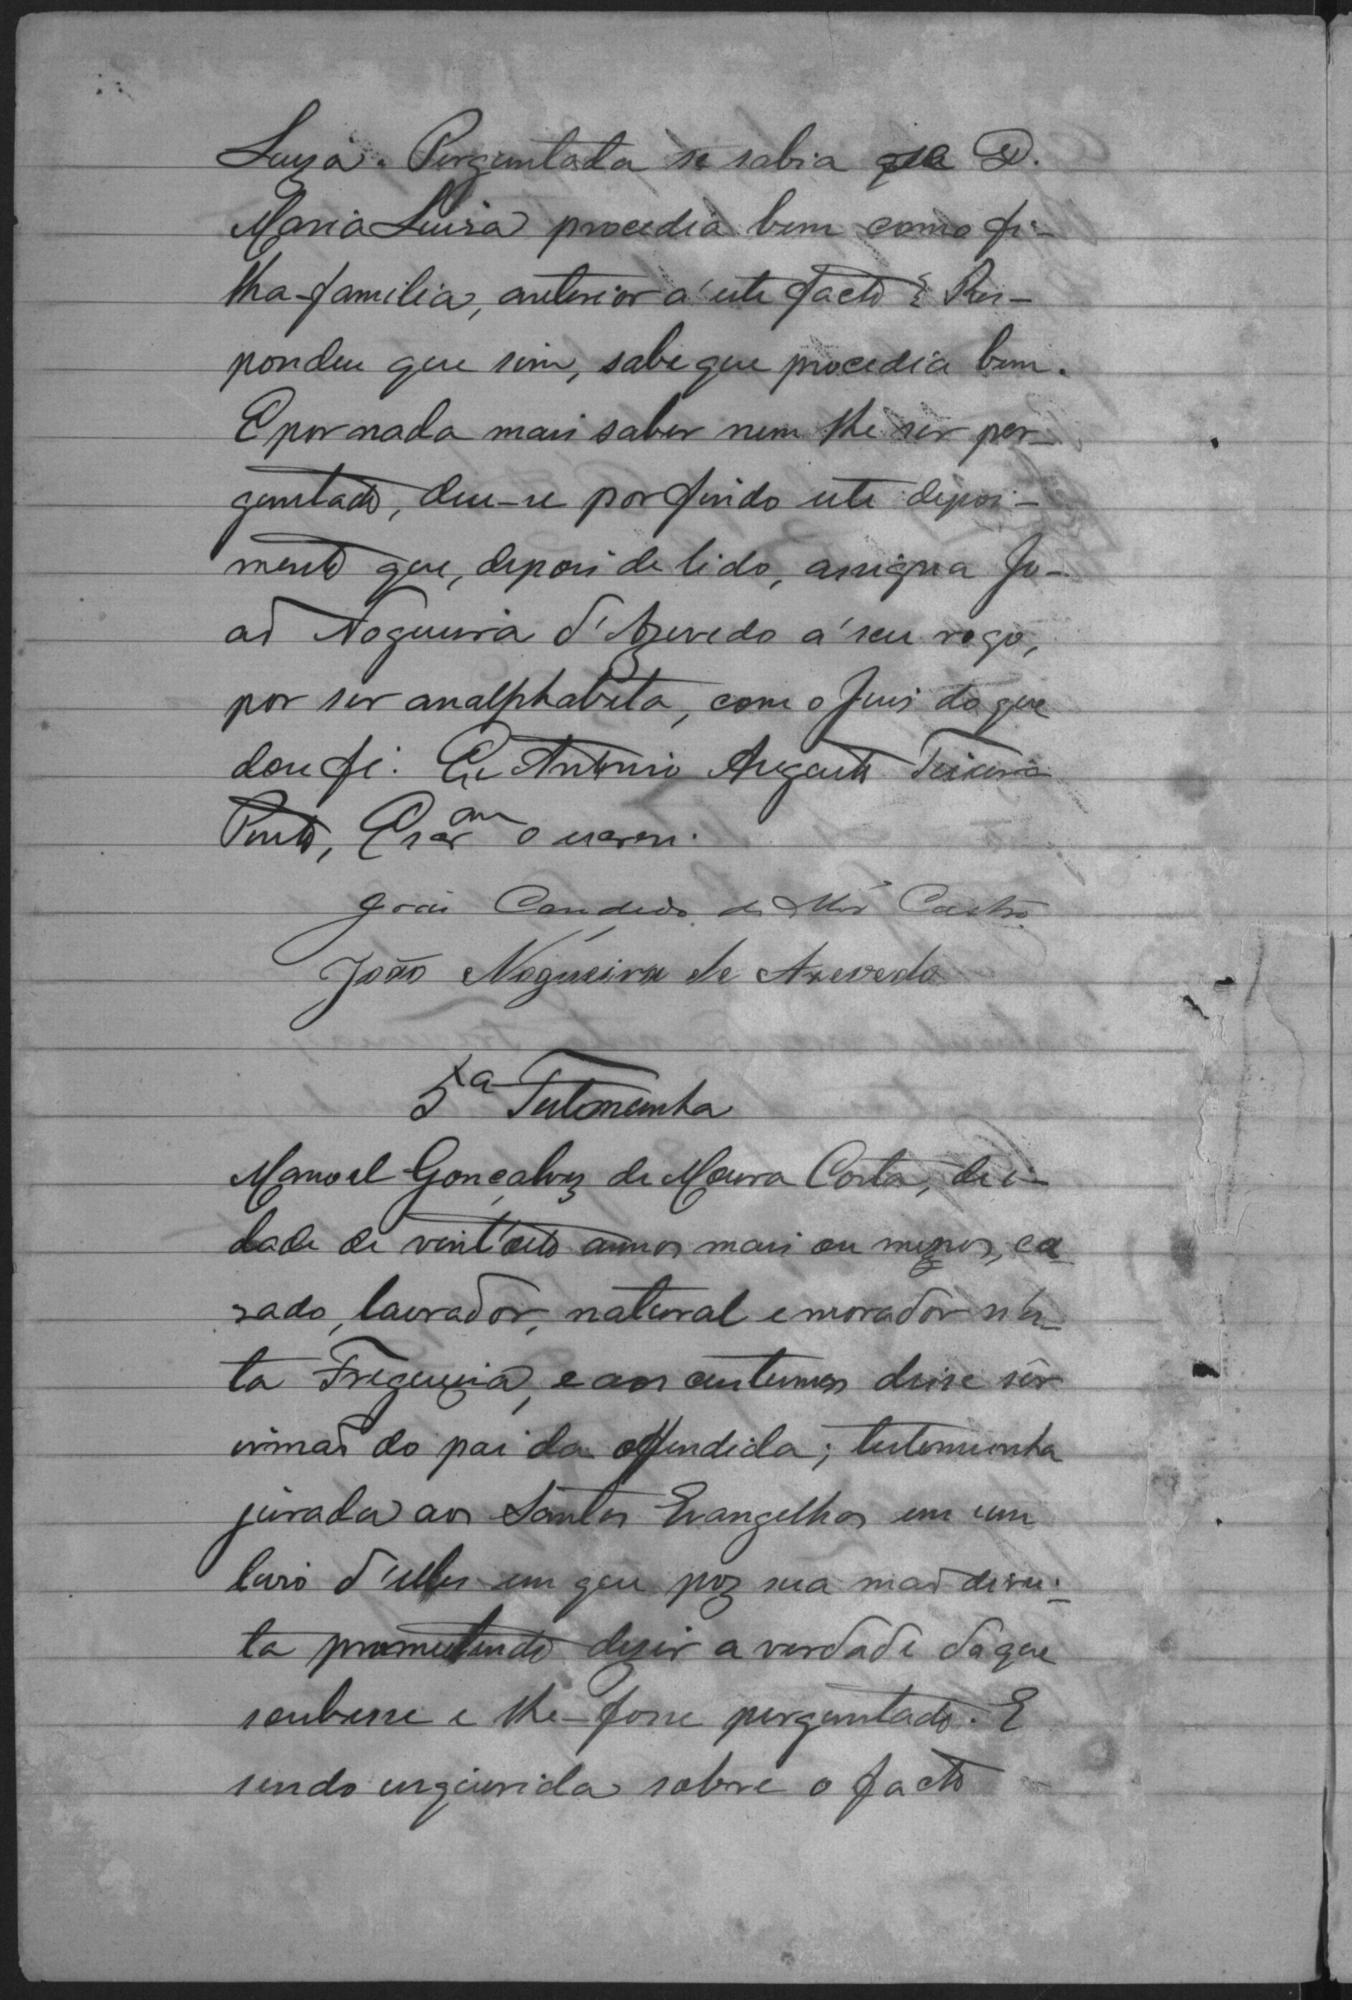 Luzia. Perguntada se sabia que D.
Maria Luiza procedia bem como fi-
lha-familia, anterior a' este facto? Res-
pondeu que sim, sabe que procedia bem.
E por nada mais saber nem lhe ser per-
guntado, deu-se por findo este depoi-
mento que, depois de lido, assigna Jo-
ão Nogueira d'Azevedo a' seu rogo,
por ser analphabeta, com o Juis do que
dou fé. Eu Antonio Augusto Teixeira
Pinto, Escr^am o escrevi.
João Candido de Castro
João Nogueira de Azevedo
5ª Testemunha
Manoel Gonçalves de Moura Costa, de i-
dade de vint'oito annos mais ou menos, ca-
sado, lavrador, natural e morador n'es-
ta Freguezia, e aos custumes disse ser
irmão do pai da offendida; testemunha
jurada aos Santos Evangelhos em um
livro d'elles em que poz sua mão direi-
ta promettendo dizer a verdade do que
soubesse e lhe-fosse perguntado. E
sendo inquirida sobre o facto